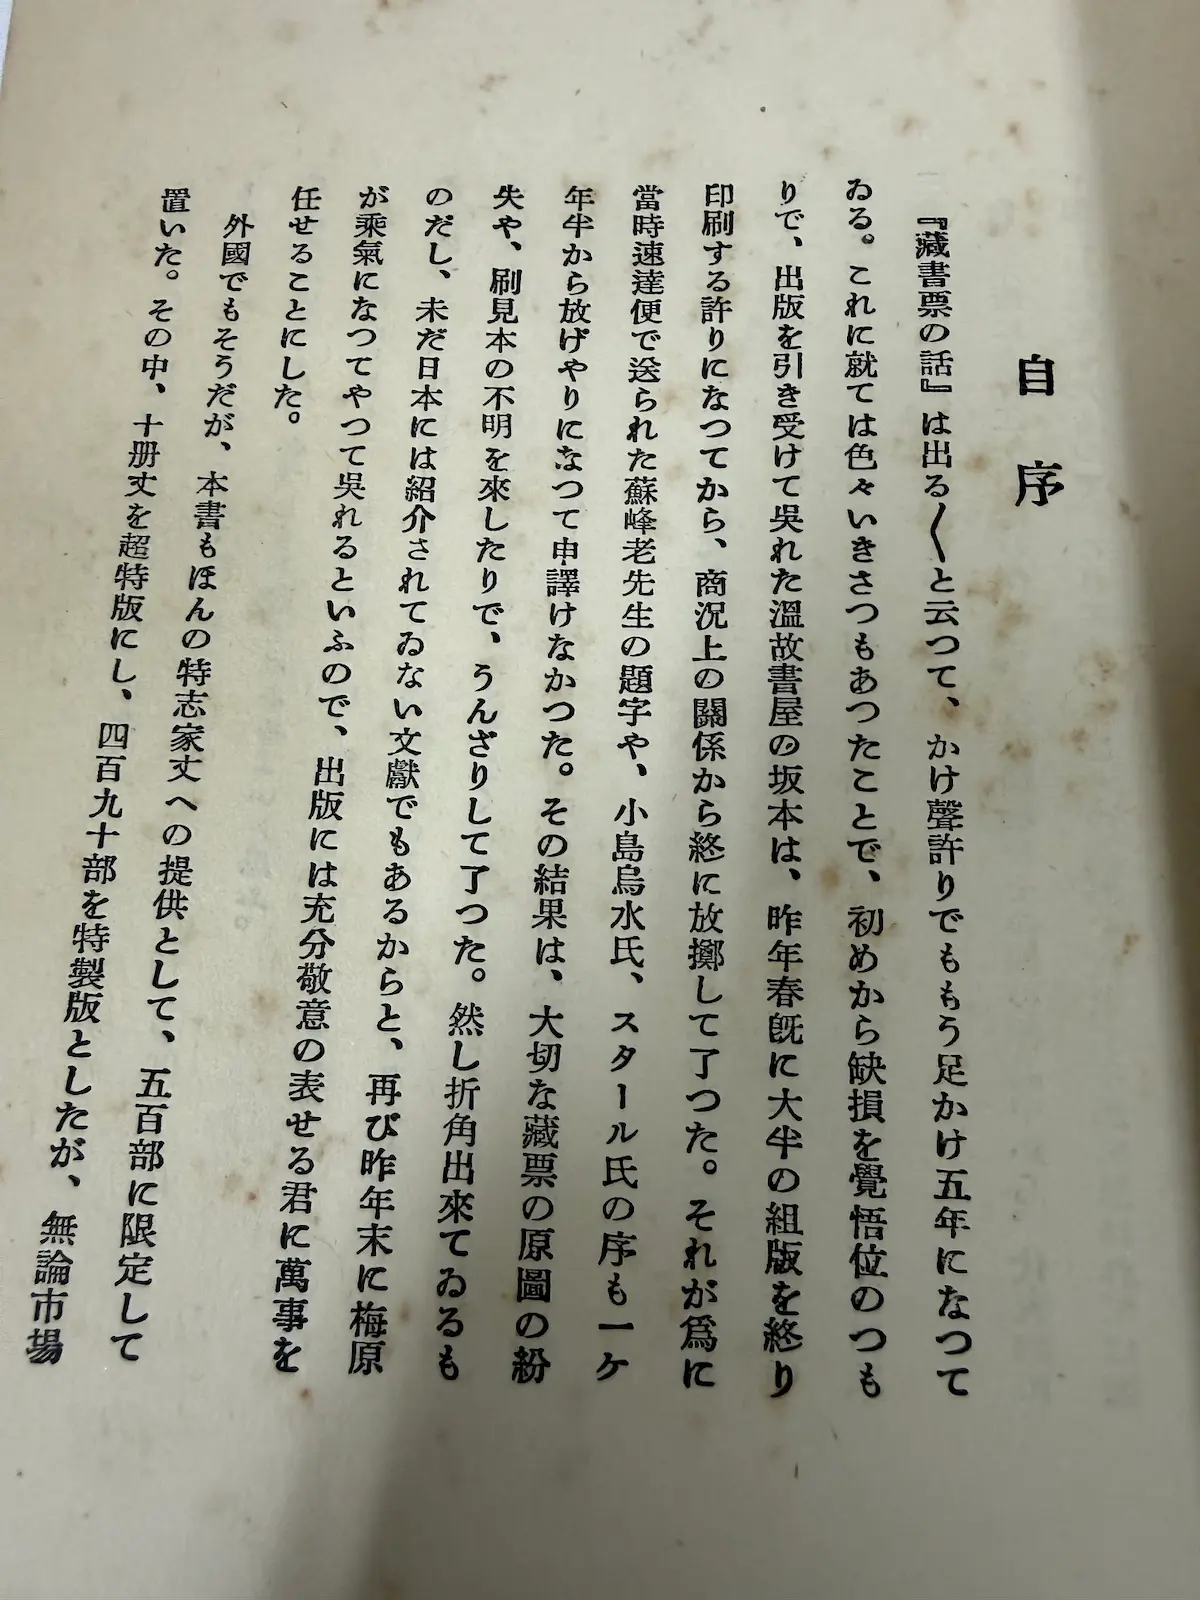 自序
『藏書票の話』は出る〳〵と云つて、かけ聲許りでももう足かけ五年になつて
ゐる。これに就ては色々いきさつもあつたことで、初めから缺損を覺悟位のつも
りで、出版を引き受けて吳れた溫故書屋の坂本は、昨年春旣に大半の組版を終り
印刷する許りになつてから、商況上の關係から終に放擲して了つた。それが爲に
當時速達便で送られた蘇峰老先生の題字や、小島烏水氏、スタール氏の序も一ケ
年半から放げやりになつて申譯けなかつた。その結果は、大切な藏票の原圖の紛
失や、刷見本の不明を來したりで、うんざりして了つた。然し折角出來てゐるも
のだし、未だ日本には紹介されてゐない文獻でもあるからと、再び昨年末に梅原
が乘氣になつてやつて吳れるといふので、出版には充分敬意の表せる君に萬事を
任せることにした。
外國でもそうだが、本書もほんの特志家丈への提供として、五百部に限定して
置いた。その中、十册丈を超特版にし、四百九十部を特製版としたが、無論市場